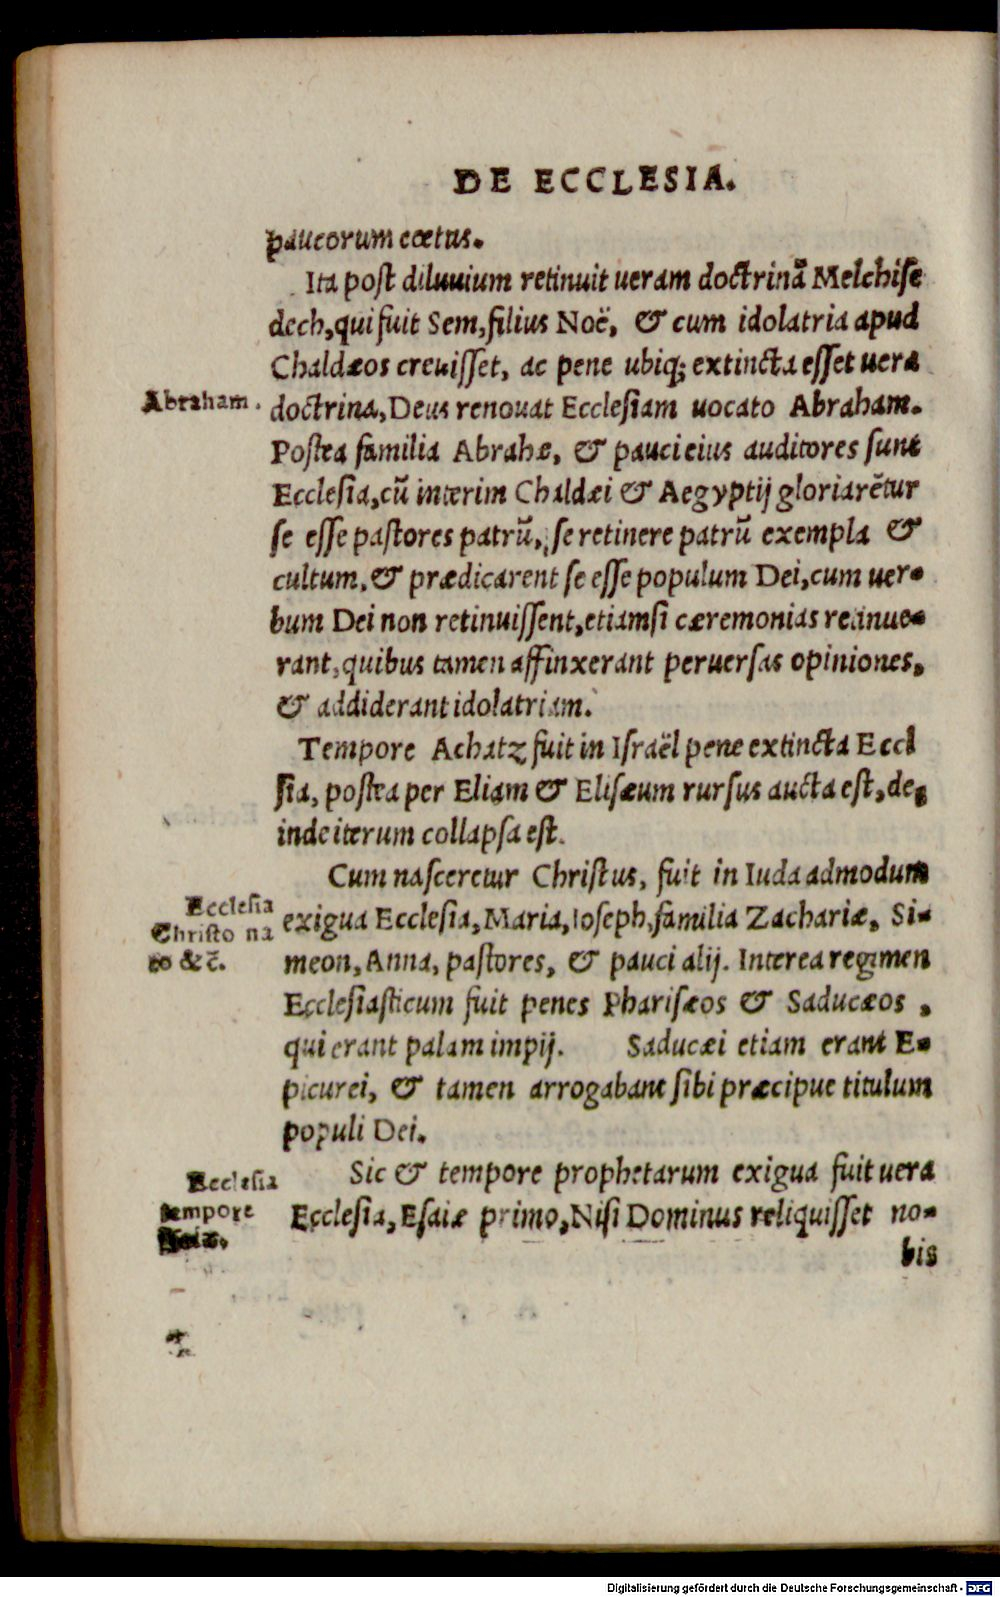 DE ECCLESIA.
paucorum cœtus.
Ita post diluuium retinuit ueram doctrinā Melchise
dech, qui fuit Sem, filius Noë, & cum idolatria apud
Chaldæos creuisset, ac pene ubiq; extincta esset uera
Abraham.
doctrina, Deus renouat Ecclesiam uocato Abraham.
Postea familia Abrahæ, & pauci eius auditores sunt
Ecclesia, cū interim Chaldæi & Aegyptij gloriarētur
se esse pastores patrū, se retinere patrū exempla &
cultum, & prædicarent se esse populum Dei, cum uer-
bum Dei non retinuissent, etiamsi cæremonias retinue-
rant, quibus tamen affinxerant peruersas opiniones,
& addiderant idolatriam.
Tempore Achatz fuit in Israël pene extincta Eccl
sia, postea per Eliam & Elisæum rursus aucta est, de,
inde iterum collapsa est.
Cum nasceretur Christus, fuit in Iuda admodum
Ecclesia
Christo na
to &c̄.
exigua Ecclesia, Maria, Ioseph, familia Zachariæ, Si-
meon, Anna, pastores, & pauci alij. Interea regimen
Ecclesiasticum fuit penes Pharisæos & Saducæos ,
qui erant palam impij. Saducæi etiam erant E-
picurei, & tamen arrogabant sibi præcipue titulum
populi Dei.
Ecclesia
tempore
Esaiæ.
Sic & tempore prophetarum exigua fuit uera
Ecclesia, Esaiæ primo, Nisi Dominus reliquisset no-
bis
Digitalisierung gefördert durch die Deutsche Forschungsgemeinschaft - DFG